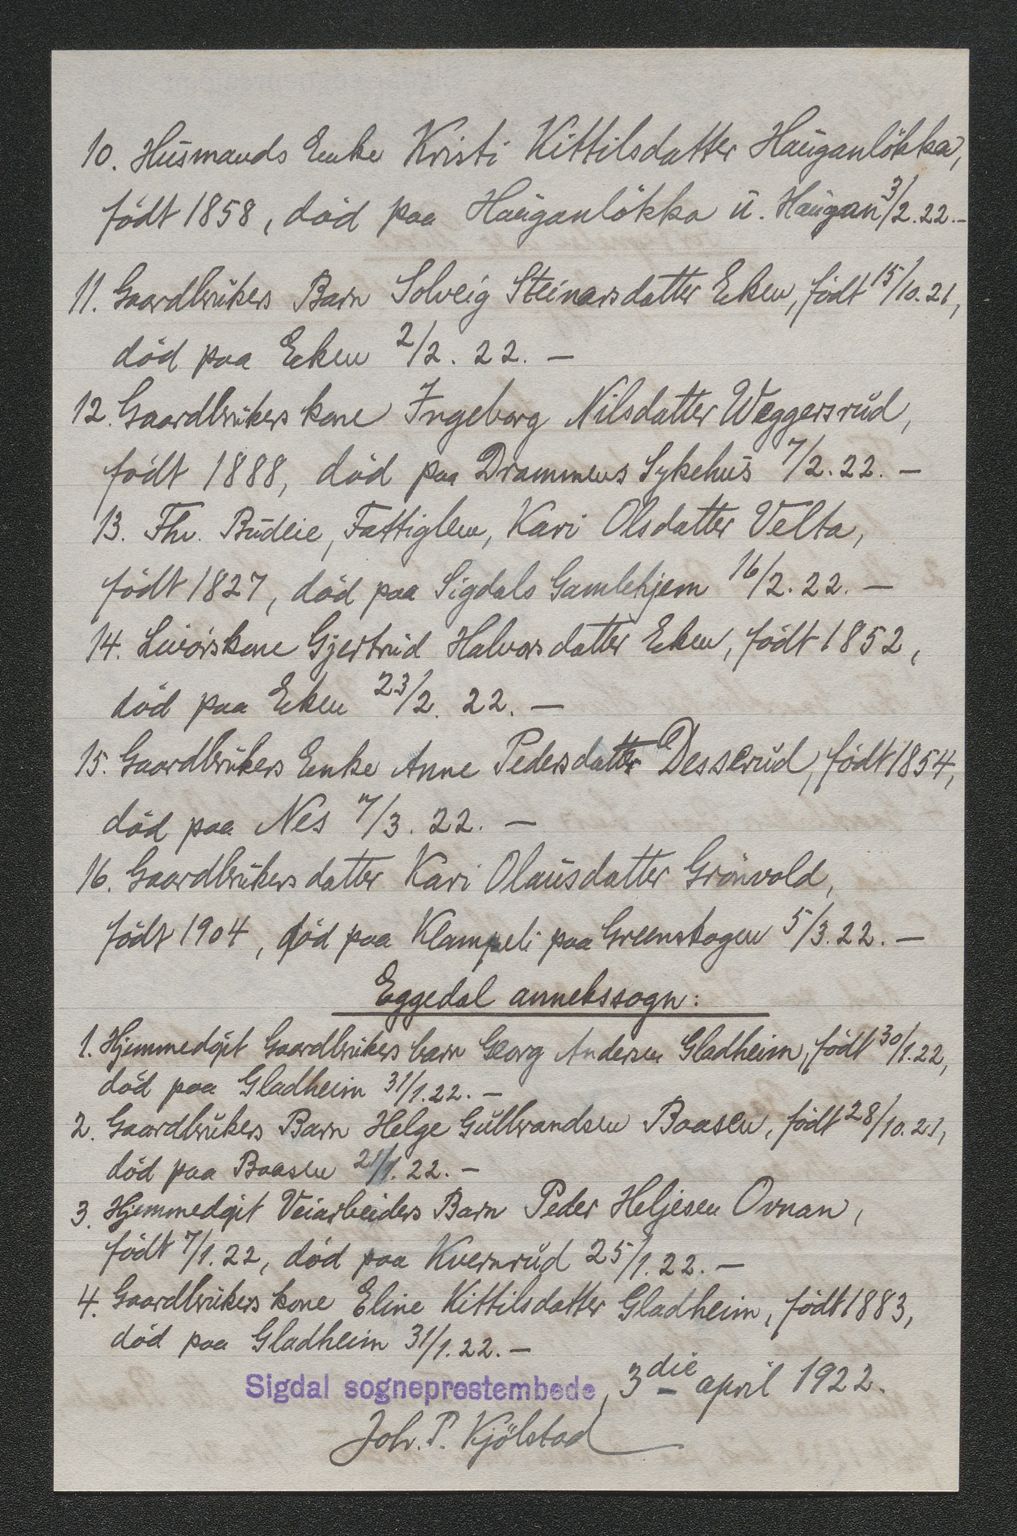 10. Husmands Enke Kristi Kittilsdatter Hauganlökka,
født 1858, död paa Hauganlökka u. Haugan 3/2.22.–
11. Gaardbrukers Barn Solveig Steinarsdatter Eken, født 15/10.21,
död paa Eken 2/2. 22. –
12. Gaardbrukers kone Ingeborg Nilsdatter Weggersrud,
født 1888, död paa Drammens Sykehus 7/2.22. –
13. Fhv. Budeie, Fattiglem, Kari Olsdatter Velta,
født 1827, död paa Sigdals Gamlehjem 16/2.22. –
14. Livörskone Gjertrud Halvorsdatter Eken, født 1852,
död paa Eken 23/2. 22. –
15. Gaardbrukers Enke Anne Pedersdatter Desserud, født 1854,
död paa Nes 7/3. 22. –
16. Gaardbrukers datter Kari Olausdatter Grönvold,
født 1904, död paa Klampeli paa Greenskogen 5/3.22. –
Eggedal annekssogn:
1. Hjemmedöpt Gaardbrukers barn Georg Andersen Gladheim, født 30/1.22,
död paa Gladheim 31/1.22. –
2. Gaardbrukers Barn Helge Gulbrandsen Baasen, født 28/10.21,
död paa Baasen 21/1.22. –
3. Hjemmedöpt Veiarbeiders Barn Peder Heljesen Ovnan,
født 7/1.22, död paa Kvernrud 25/1.22. –
4. Gaardbrukers kone Eline Kittilsdatter Gladheim, født 1883,
död paa Gladheim 31/1.22. –
Sigdal sogneprestembede, 3die april 1922.
Joh. P. Kjölstad